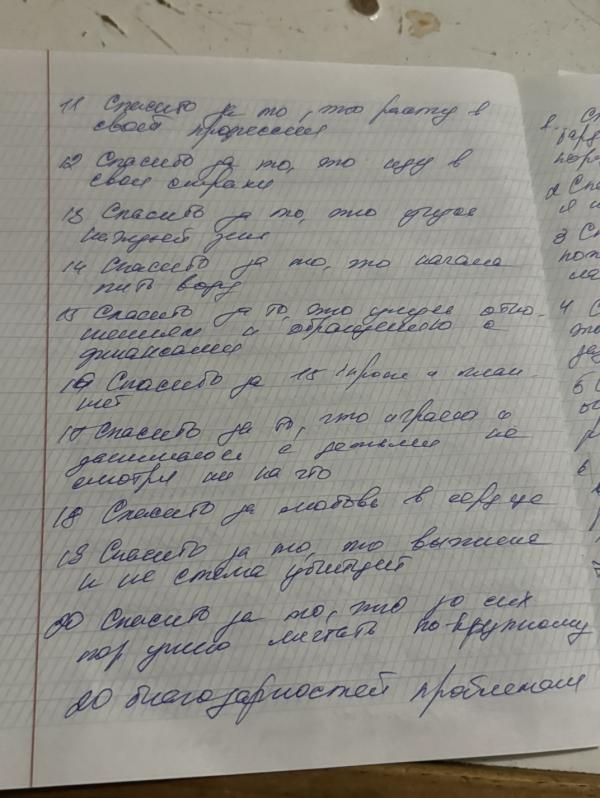 11 Спасибо за то, что расту в
своей профессии
12 Спасибо за то, что иду в
свои страхи
13 Спасибо за то, что учусь
каждый день
14 Спасибо за то, что начала
пить воду
15 Спасибо за то, что учусь отно-
шениям и обращению с
финансами
16 Спасибо за 15 Iпроши и план-
шет
17 Спасибо за то, что играю и
занимаюсь с детьми не
смотря ни на что
18 Спасибо за любовь в сердце
19 Спасибо за то, что выжила
и не стала убийцей
20 Спасибо за то, что до сих
пор умею мечтать по-крупному
20 благодарностей проблемам
1.
2 Спа
3 Сп
4 С
5
6